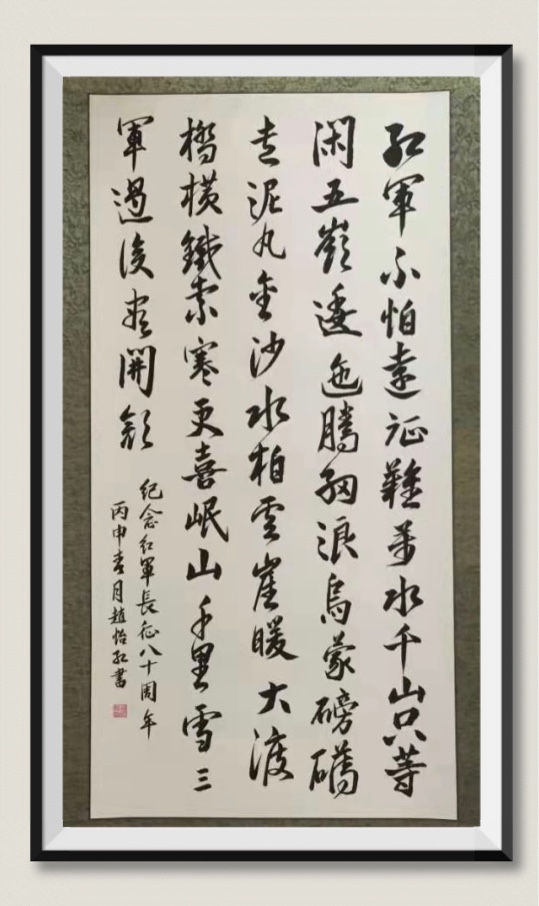 红軍不怕遠征難萬水千山只等
闲五嶺逶迤騰細浪烏蒙磅礴
走泥丸金沙水柏雲崖暖大渡
橋橫鐵索寒更喜岷山千里雪三
軍過後盡開顏
纪念红軍長征八十周年
丙申春月趙怡红書